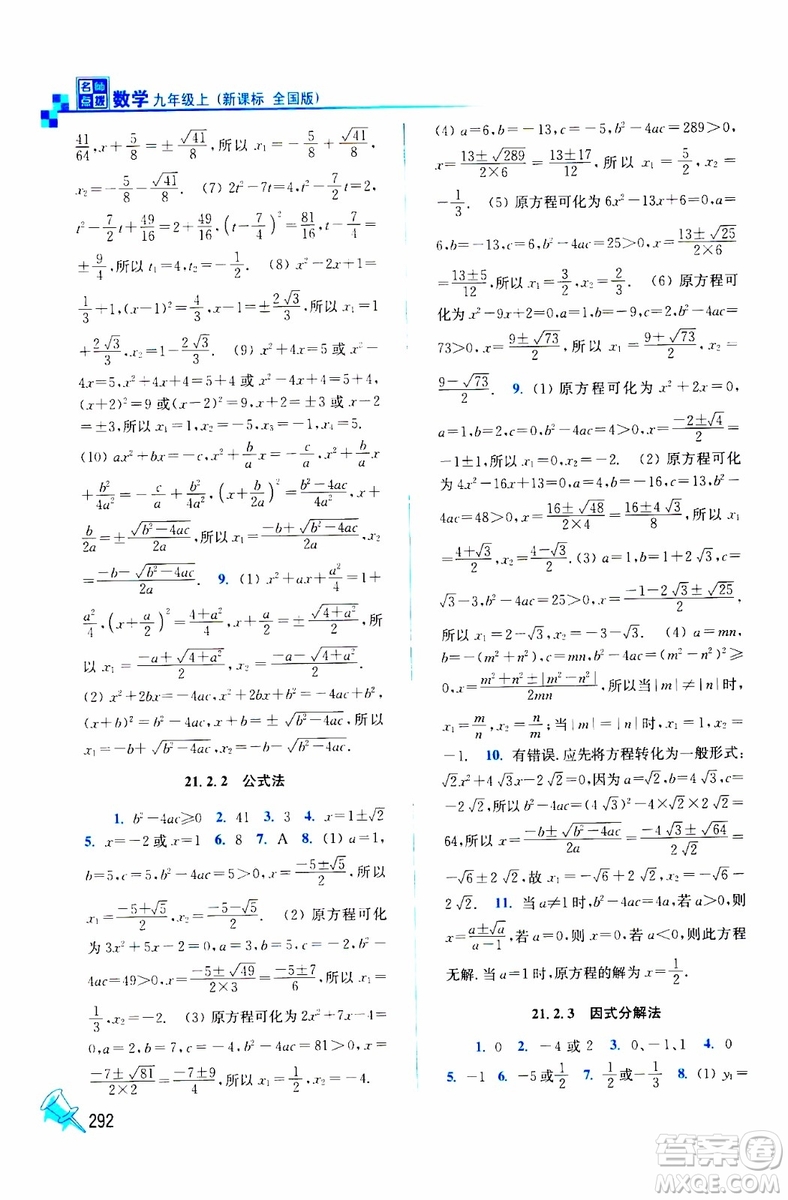 名师点拨 数学 九年级上 (新课标 全国版)
41/64, x+5/8=±√41/8, 所以 x₁=-5/8+√41/8,
x₂=-5/8-√41/8. (7) 2t²-7t=4, t²-7/2t=2,
t²-7/2t+49/16=2+49/16, (t-7/4)²=81/16, t-7/4=
±9/4, 所以 t₁=4, t₂=-1/2. (8) x²-2x+1=
1/3+1, (x-1)²=4/3, x-1=±2√3/3, 所以 x₁=1
+2√3/3, x₂=1-2√3/3. (9) x²+4x=5 或 x²-
4x=5, x²+4x+4=5+4 或 x²-4x+4=5+4,
(x+2)²=9 或 (x-2)²=9, x+2=±3 或 x-2
=±3, 所以 x₁=1, x₂=-5, x₃=-1, x₄=5.
(10) ax²+bx=-c, x²+b/a x=-c/a, x²+b/a x
+b²/4a²=-c/a+b²/4a², (x+b/2a)²=(b²-4ac)/4a², x+
b/2a=±√(b²-4ac)/2a, 所以 x₁=(-b+√(b²-4ac))/2a, x₂=
(-b-√(b²-4ac))/2a. 9. (1) x²+ax+a²/4=1+
a²/4, (x+a/2)²=(4+a²)/4, x+a/2=±√(4+a²)/2, 所
以 x₁=(-a+√(4+a²))/2, x₂=(-a-√(4+a²))/2.
(2) x²+2bx=-4ac, x²+2bx+b²=b²-4ac,
(x+b)²=b²-4ac, x+b=±√(b²-4ac), 所以
x₁=-b+√(b²-4ac), x₂=-b-√(b²-4ac).
21.2.2 公式法
1. b²-4ac≥0 2. 41 3. 3 4. x=1±√2
5. x=-2 或 x=1 6. 8 7. A 8. (1) a=1,
b=5, c=5, b²-4ac=5>0, x=(-5±√5)/2, 所以
x₁=(-5+√5)/2, x₂=(-5-√5)/2. (2) 原方程可化
为 3x²+5x-2=0, a=3, b=5, c=-2, b²-
4ac=49>0, x=(-5±√49)/(2×3)=(-5±7)/6, 所以 x₁=
1/3, x₂=-2. (3) 原方程可化为 2x²+7x-4=
0, a=2, b=7, c=-4, b²-4ac=81>0, x=
(-7±√81)/(2×2)=(-7±9)/4, 所以 x₁=1/2, x₂=-4.
(4) a=6, b=-13, c=-5, b²-4ac=289>0,
x=(13±√289)/(2×6)=(13±17)/12, 所以 x₁=5/2, x₂=
-1/3. (5) 原方程可化为 6x²-13x+6=0, a=
6, b=-13, c=6, b²-4ac=25>0, x=(13±√25)/(2×6)
=(13±5)/12, 所以 x₁=3/2, x₂=2/3. (6) 原方程可
化为 x²-9x+2=0, a=1, b=-9, c=2, b²-4ac=
73>0, x=(9±√73)/2, 所以 x₁=(9+√73)/2, x₂=
(9-√73)/2. 9. (1) 原方程可化为 x²+2x=0,
a=1, b=2, c=0, b²-4ac=4>0, x=(-2±√4)/2=
-1±1, 所以 x₁=0, x₂=-2. (2) 原方程可化
为 4x²-16x+13=0, a=4, b=-16, c=13, b²-
4ac=48>0, x=(16±√48)/(2×4)=(16±4√3)/8, 所以 x₁=
(4+√3)/2, x₂=(4-√3)/2. (3) 原方程可化为 x²+
(1+2√3)x+√3-3=0, a=1, b=1+2√3, c=
√3-3, b²-4ac=25>0, x=(-1-2√3±√25)/2,
所以 x₁=2-√3, x₂=-3-√3. (4) a=mn,
b=-(m²+n²), c=mn, b²-4ac=(m²-n²)²≥
0, x=(m²+n²±|m²-n²|)/2mn, 所以当|m|≠|n|时,
x₁=m/n, x₂=n/m; 当|m|=|n|时, x₁=x₂=1或
-1. 10. 有错误. 应先将方程转化为一般形式:
√2x²+4√3x-2√2=0, a=√2, b=4√3, c=
-2√2, 所以 b²-4ac=(4√3)²-4×√2×(-2√2)=
64, 所以 x=(-b±√(b²-4ac))/2a=(-4√3±√64)/2√2=
-√6±2√2. 故 x₁=-√6+2√2, x₂=-√6-
2√2. 11. 当 a≠1 时, b²-4ac=4a, 若 a≥0,
x=(a±√a)/(a-1), 若 a<0, b²-4ac<0, 此时方程
无解. 当 a=1 时, 原方程的解为 x=1/2.
21.2.3 因式分解法
1. 0 2. -4 或 2 3. 0、-1、1 4. 0
5. -1 6. -2/3 7. 1/3 或 -1/3 8. (1) y₁=
292
答案圈
MXQE.COM